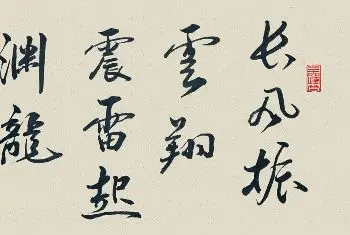 长风振
雲翔
震雷起
渊龍